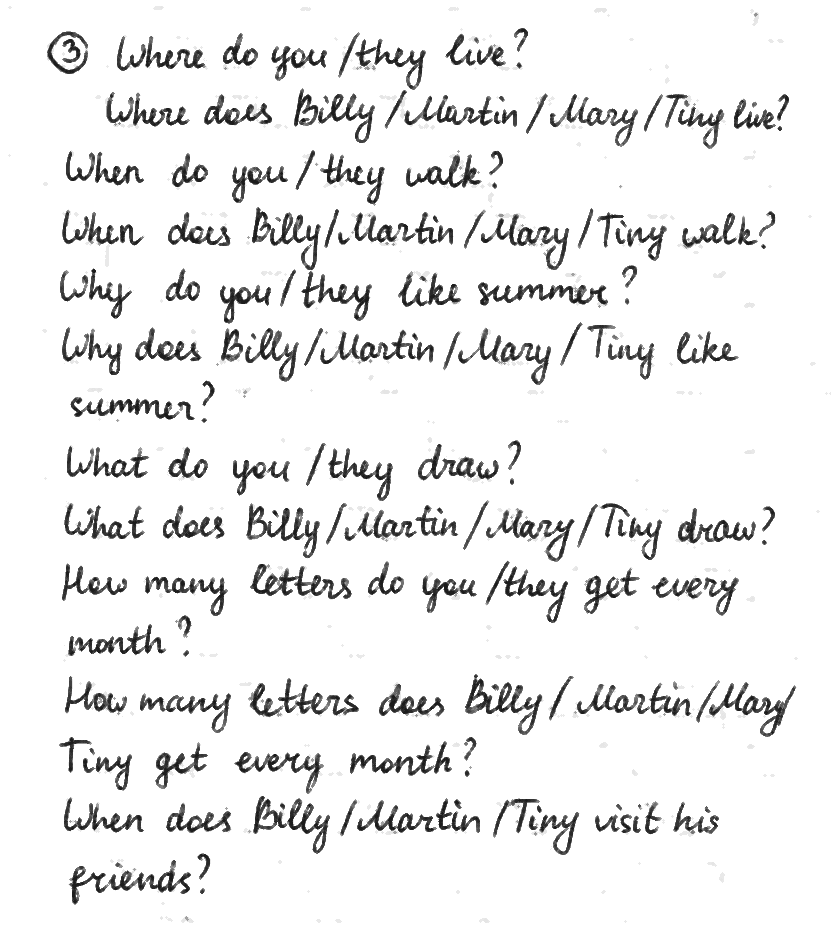 ③ Where do you /they live?
Where does Billy /Martin / Mary / Tiny live?
When do you / they walk?
When does Billy/Martin /Mary / Tiny walk?
Why do you / they like summer?
Why does Billy/Martin /Mary / Tiny like
summer?
What do you /they draw?
What does Billy/Martin /Mary / Tiny draw?
How many letters do you /they get every
month?
How many letters does Billy / Martin /Mary/
Tiny get every month?
When does Billy /Martin /Tiny visit his
friends?